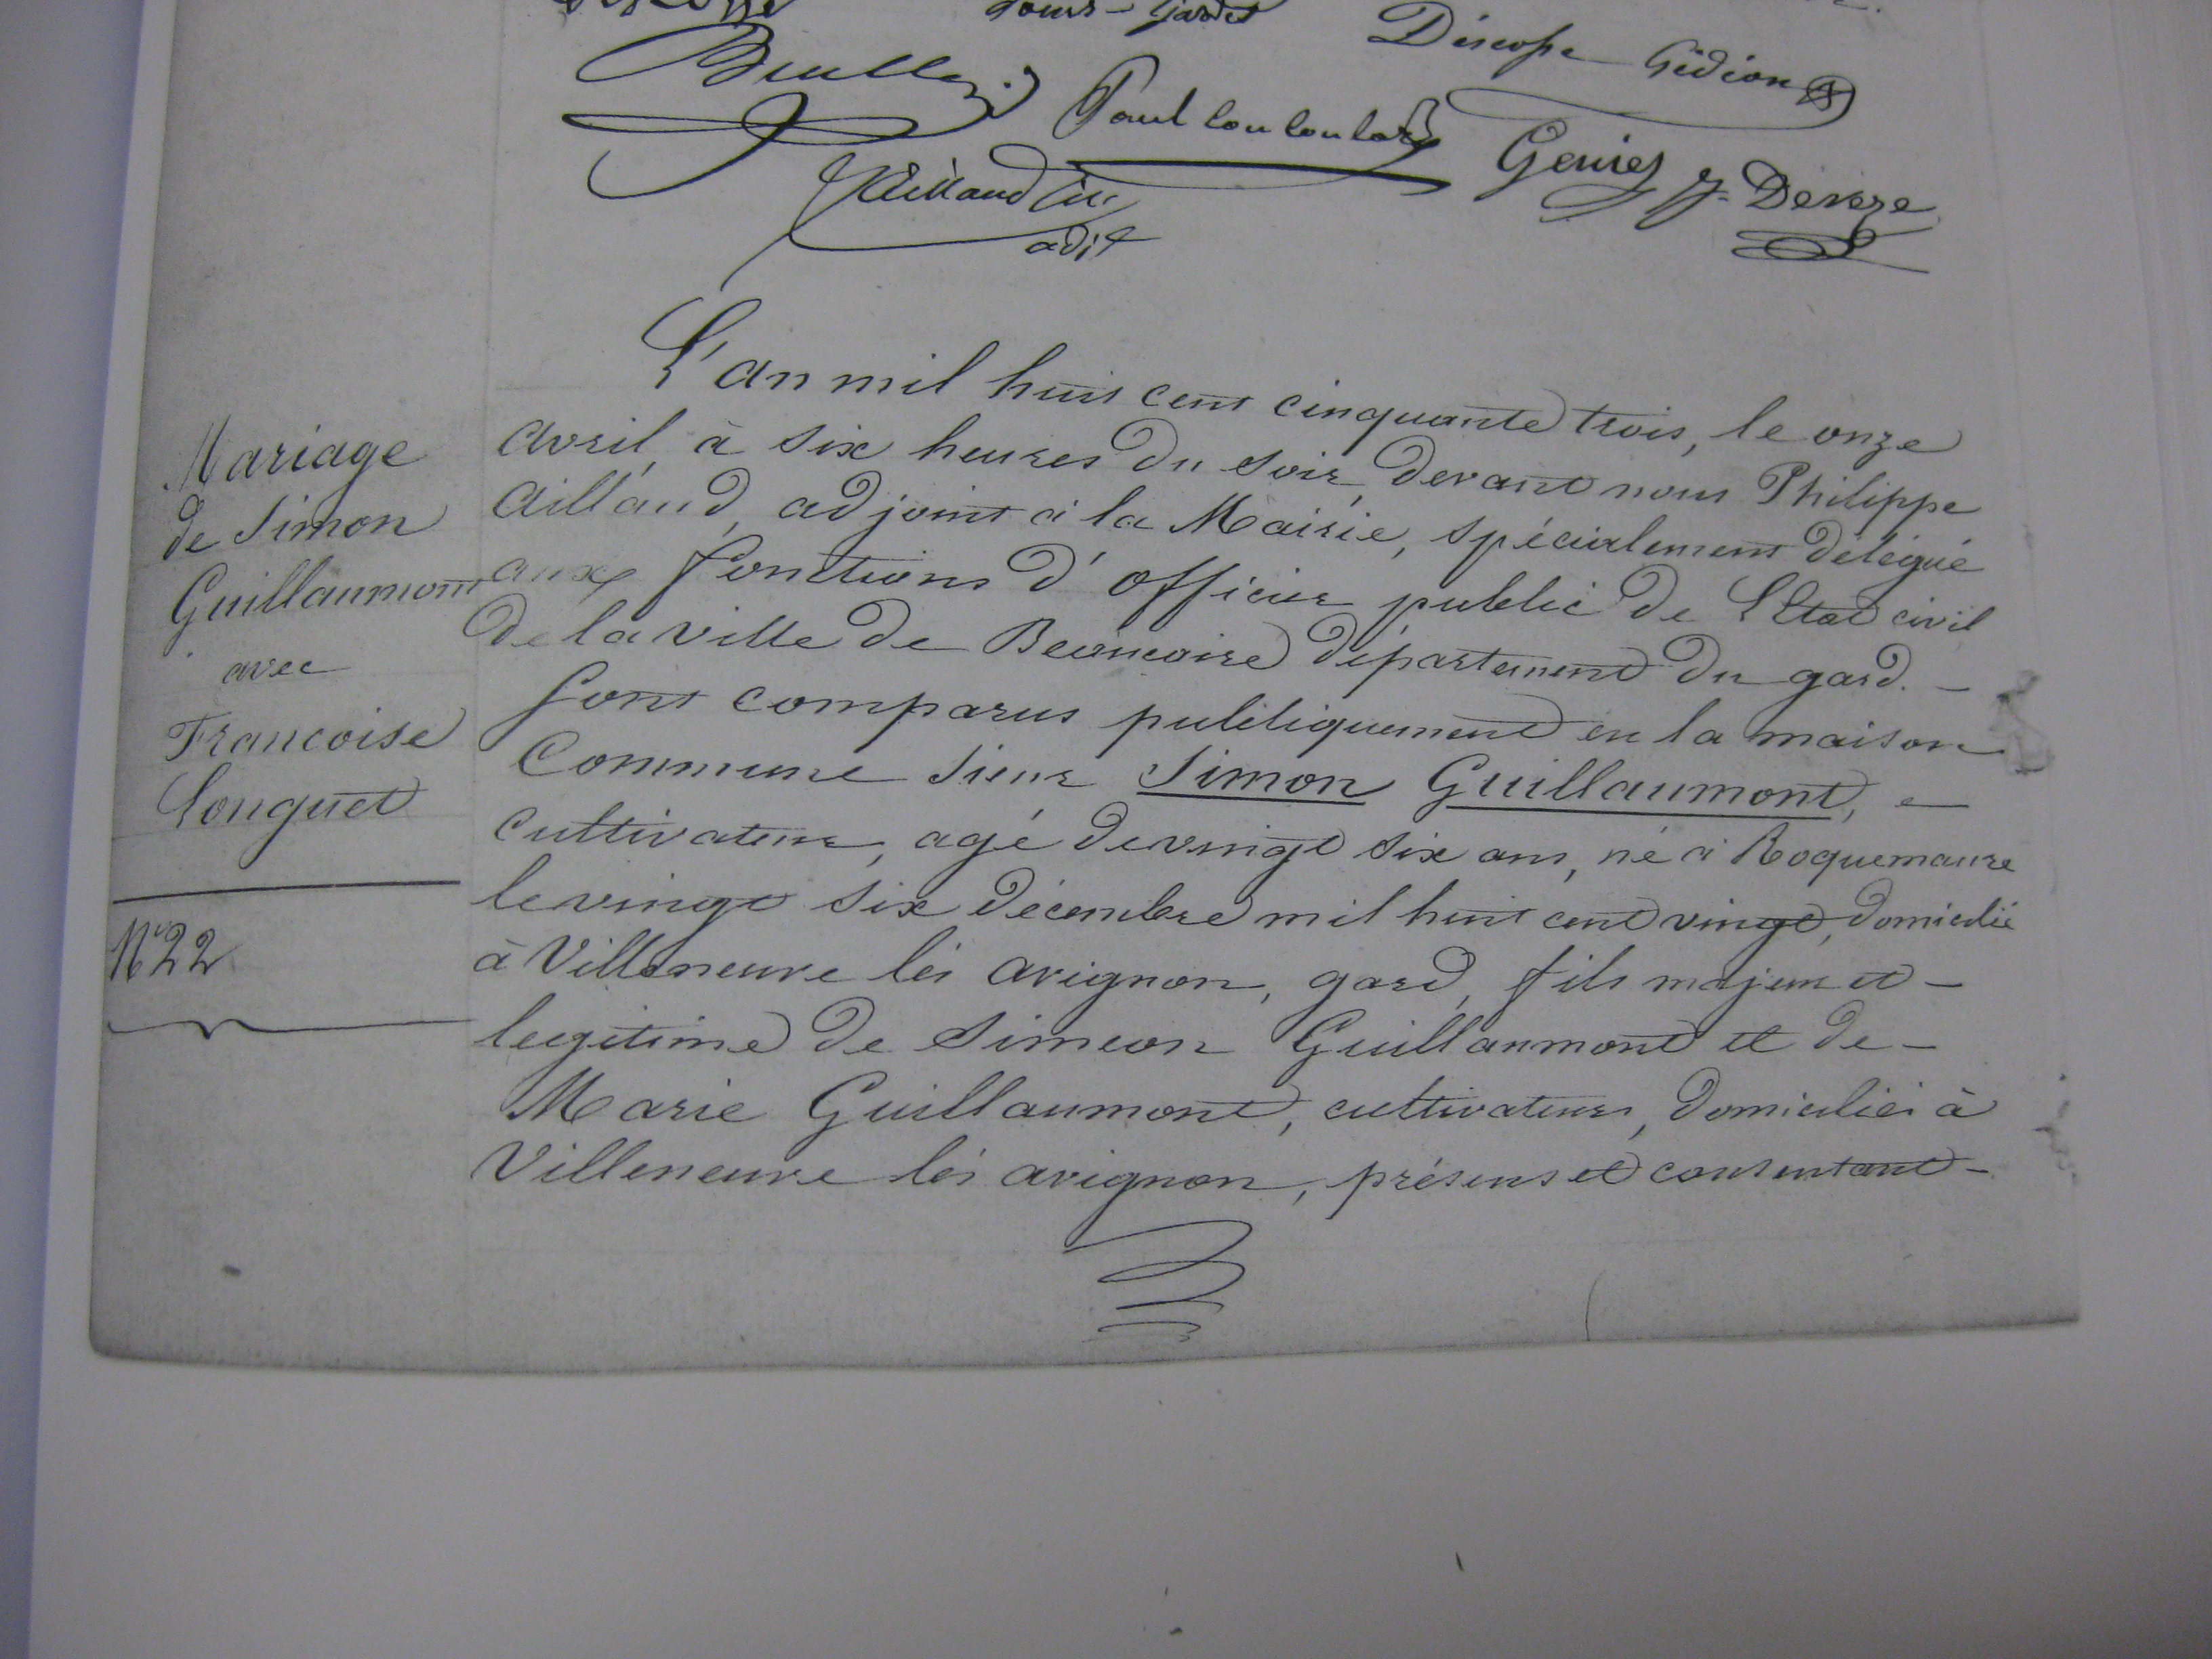 Descope Gédéon
Paul Couloulary
Geniez J. Devèze
adjt
L'an mil huit cent cinquante trois, le onze
avril, à six heures du soir, devant nous Philippe
Aillaud, adjoint à la Mairie, spécialement délégué
aux fonctions d'officier public de l'Etat civil
de la ville de Beaucaire département du gard. -
Sont comparus publiquement en la maison
Commune sieur Simon Guillaumont, -
cultivateur, agé de vingt six ans, né à Roquemaure
le vingt six décembre mil huit cent vingt, domicilié
à Villeneuve lès avignon, gard, fils majeur et -
legitime de Simeon Guillaumont et de -
Marie Guillaumont, cultivateurs, domiciliés à
Villeneuve lès avignon, présens et consentant -
Mariage
de Simon
Guillaumont
avec
Francoise
Louguet
N° 22